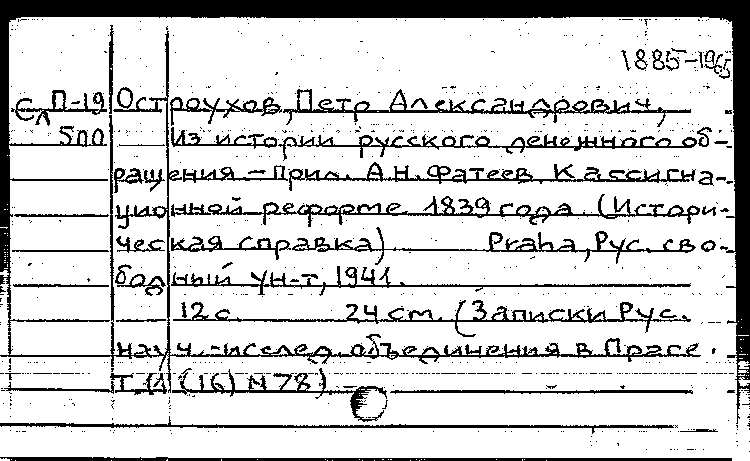 1885-1965
Сл П-19 Остроухов, Петр Александрович,
500 Из истории русского денежного об-
ращения - Прил. А.Н. Фатеев. К ассигна-
ционной реформе 1839 года. (Истори-
ческая справка) Praha, Рус. сво-
бодный ун-т, 1941.
12 с. 24 cm. (Записки Рус.
науч.-исслед. объединения в Праге.
Т. (16) N 78)